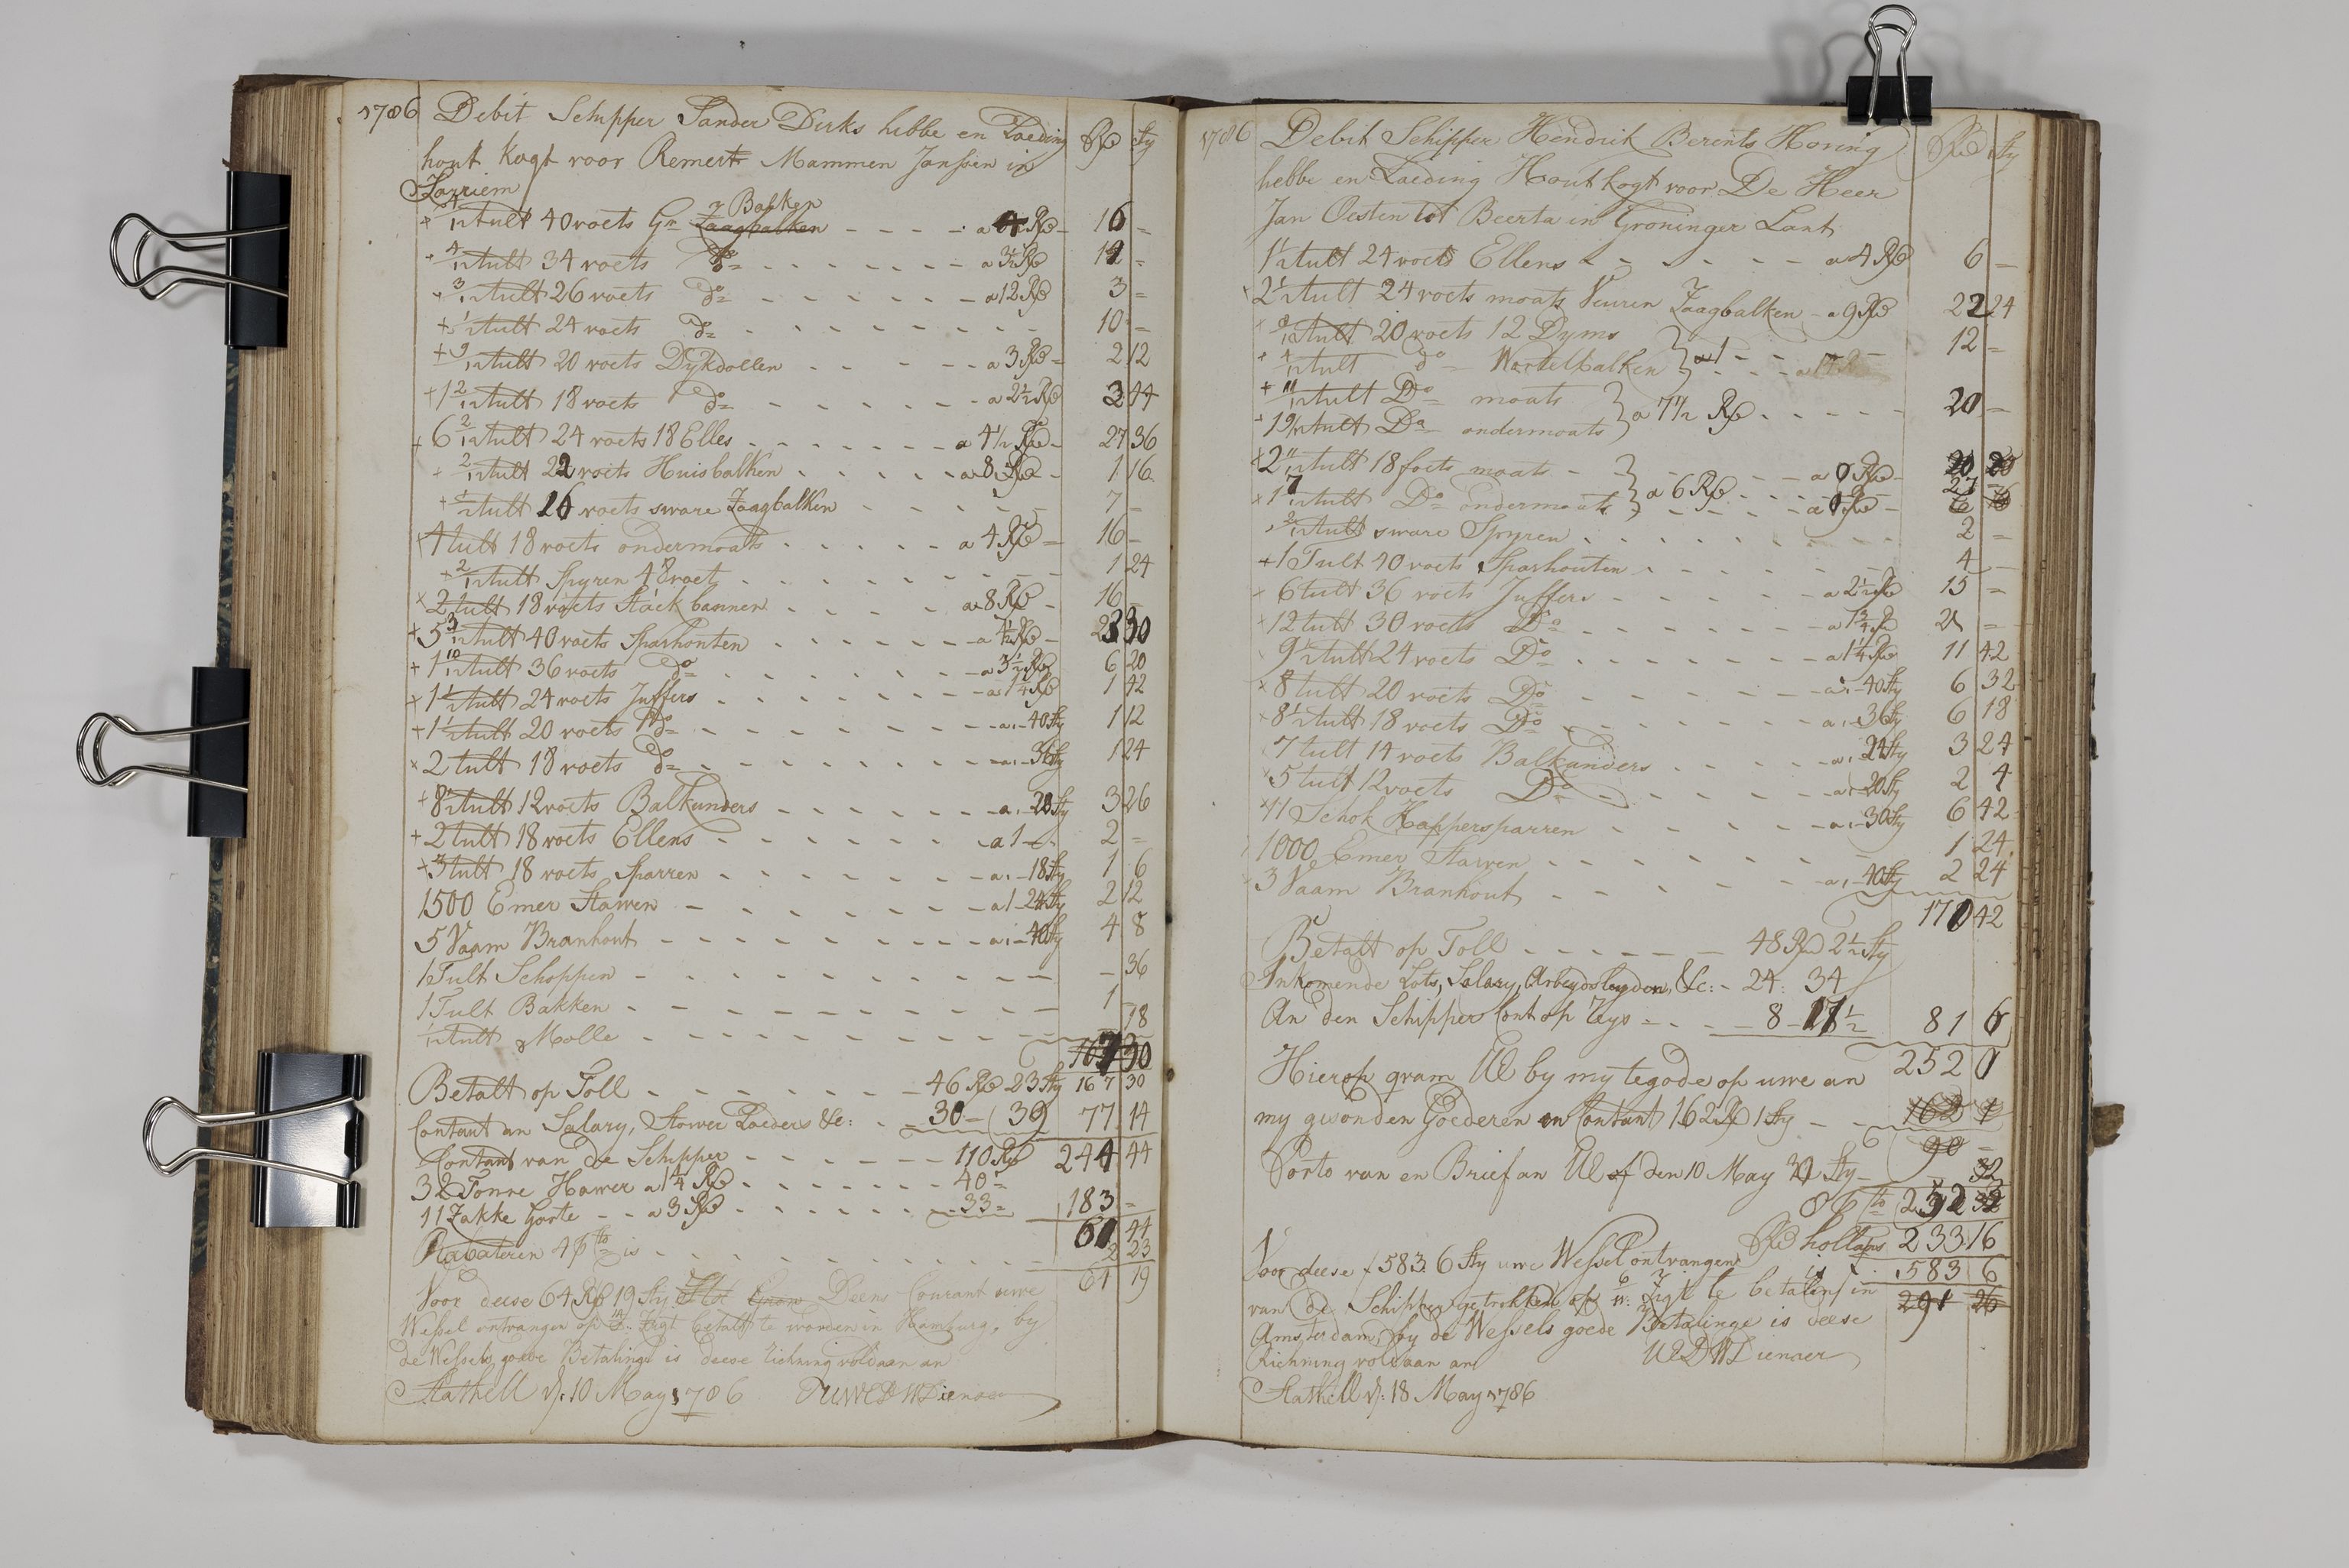 1786 Debit Schipper Sander Dirks hebbe en Laeding Rd Sty
hout kogt voor Remert Mammen Janssen in
Larriem
4/12 tult 40 voets Gr Balken - - - - a 4 Rd - 16 =
4/12 tult 34 voets do - - - - a 3½ Rd 14 =
3/12 tult 26 voets do - - - - a 12 Rd 3 =
tult 24 voets do - - - - 10 =
9/12 tult 20 voets Dykdollen - - - - a 3 Rd = 2 12
1 2/12 tult 18 voets do - - - - a 2½ Rd 2 44
6 2/12 tult 24 voets 18 Elles - - - - a 4½ Rd - 27 36
2/12 tult 22 voets Huisbalken - - - - a 8 Rd - 1 16
tult 26 voets sware Zaagbalken - - - - 7 =
4 tult 18 voets ondermoats - - - - a 4 Rd = 16 -
2/12 tult Spyren 48 voet - - - - 1 24
2 tult 18 voets Stackbannen - - - - a 8 Rd - 16 -
5 3/12 tult 40 voets Sparhouten - - - - a 4½ Rd - 23 30
1 10/12 tult 36 voets do - - - - a 3½ Rd 6 20
1½ tult 24 voets Juffers - - - - a 1¼ Rd 1 42
1½ tult 20 voets do - - - - a - 40 Sty 1 12
2 tult 18 voets do - - - - a - 36 Sty 1 24
8½ tult 12 voets Balkunders - - - - a - 20 Sty 3 26
2 tult 18 voets Ellens - - - - a 1 - 2 =
3 tult 18 voets Sparren - - - - a - 18 Sty 1 6
1500 Emer Stawen - - - - a 1 - 24 Sty 2 12
5 Vaam Branhout - - - - a - 40 Sty 4 8
1 Tult Schoppen - - - - - 36
1 Tult Bakken - - - - 1
½ tult Molle - - - - 18
167 30
Betalt op Toll - - - - 46 Rd 23 Sty 167 30
Contant an Salary, Stower Laeders &c: - 30 - 39 77 14
Contant van de Schipper - - - - 110 Rd 244 44
32 Tonne Hawer a 1¼ Rd - - - - 40 =
11 Zakke Gorte - - a 3 Rd - - - - 33 = 183 =
61 44
Rabateren 4 p to is - - - - 2 23
64 19
Voor deese 64 Rd 19 Sty Deens Courant uwe
Wessel ontvangen op Zigt betalt te worden in Hamburg, by
de Wessels goede Betalinge is deese Richning voldaan an
Stathell d: 10 May 1786 UWEDWDienaer
1786 Debit Schipper Hendrik Berents Horing Rd Sty
hebbe en Laeding Hout kogt voor De Heer
Jan Oesten tot Beerta in Groninger Lant
1½ tult 24 voets Ellens - - - - a 4 Rd 6 =
2½ tult 24 voets moats Veuren Zaagbalken - a 9 Rd 22 24
8/12 tult 20 voets 12 Dyms
4/12 tult do Wortelbalken - - - - 12 =
11/12 tult Do moats
1 9/12 tult Do ondermoats } a 7½ Rd - - - - 20 =
2 11/12 tult 18 foets moats - - - -
1 7/12 tult Do ondermoats } a 6 Rd - - - - 27 =
2/12 tult sware Spyren - - - - 2 =
1 Tult 40 voets Sparhouten - - - - 4 -
6 tult 36 voets Juffers - - - - a 2½ Rd 15 =
12 tult 30 voets Do - - - - a 1¾ Rd 21 =
9½ tult 24 voets Do - - - - a 1¼ Rd 11 42
8 tult 20 voets Do - - - - a - 40 Sty 6 32
8½ tult 18 voets Do - - - - a - 36 Sty 6 18
7 tult 14 voets Balkunders - - - - a - 24 Sty 3 24
5 tult 12 voets Do - - - - a - 20 Sty 2 4
11 Schok Happersparren - - - - a - 30 Sty 6 42
1000 Emer Starven - - - - 1 24
3 Vaam Branhout - - - - a - 40 Sty 2 24
170 42
Betalt op Toll - - - - 48 Rd 2½ Sty
Inkomende Lots, Salary, Arbeydsluyden, &c: - 24: 34
An den Schipper Cont op Reys - - - 8 - 17½ 81 6
Hierop qvam UE by my tegode op uwe an 252 0
my gesonden Goederen en Contant 162 Rd 1 Sty - - 162 1
90 =
Porto van en Brief an UE of den 10 May Sty - 32
Rd hollans 233 16
Voor deese f 583. 6 Sty uwe Wessel ontvangen is f. 583 6
van de Schipper getrokken op Zigt te betalen in 291 26
Amsterdam, by de Wessels goede Betalinge is deese
Richning voldaan an UEDWDienaer
Stathell d: 18 May 1786